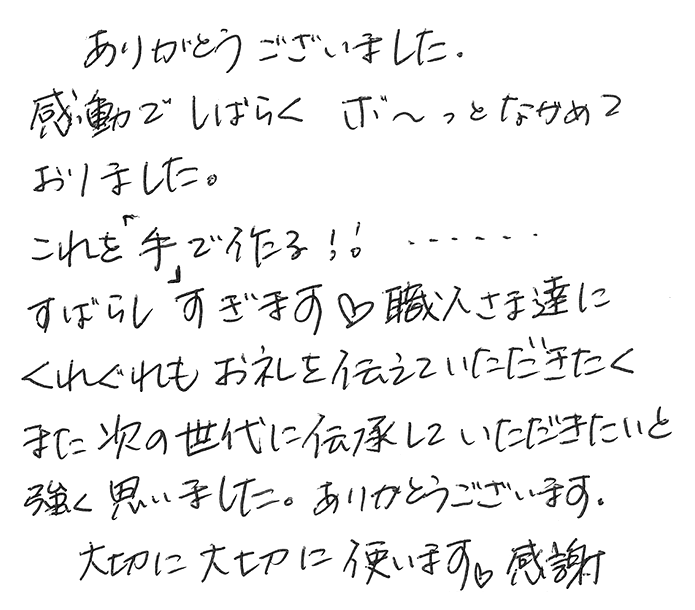 ありがとうございました.
感動で しばらく ボ〜っとながめて
おりました。
これを「手」で作る!! ・・・・・・
すばらしすぎます♡職人さま達に
くれぐれもお礼を伝えていただきたく
また次の世代に伝承していただきたいと
強く思いました。ありがとうございます.
大切に大切に使います♡感謝